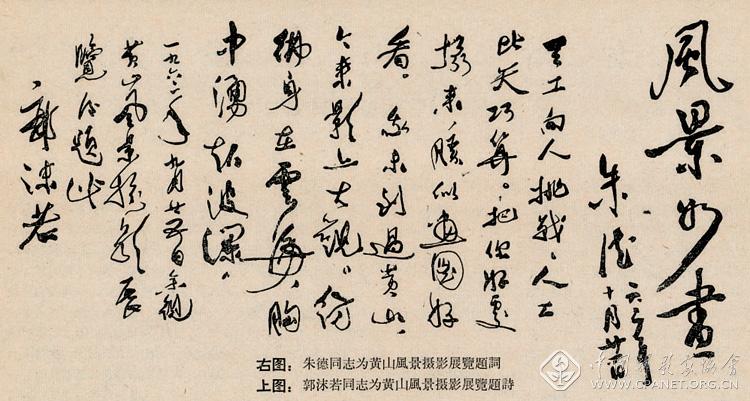 風景如畫
朱德
六二年
十月廿日
天工向人挑战，人工
比天巧算。把你好处
撮来，勝似画图好
看。我未到过黄山，
今来影上大觀。彷
彿身在雲海，胸
中湧起波瀾。
一九六二年九月廿五日参观
黄山风景摄影展
覽后題此
郭沫若
右图：朱德同志为黄山風景摄影展覽題詞
上图：郭沫若同志为黄山風景摄影展覽題詩
中国攝影家協會
WWW.CPANET.ORG.CN